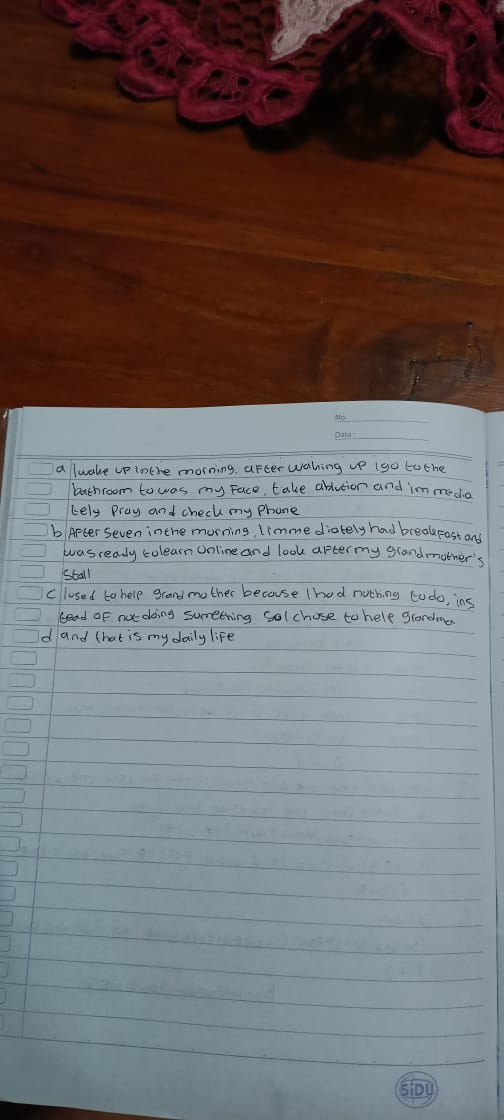 No.
Date :
a I wake up in the morning. after waking up I go to the
bathroom to was my face, take ablution and immedia
tely pray and check my phone
b After seven in the morning, I immediately had breakfast and
was ready to learn online and look after my grandmother's
stall
c I used to help grandmother because I had nothing to do, ins
tead of not doing something so I chose to help grandma
d and that is my daily life
SIDU